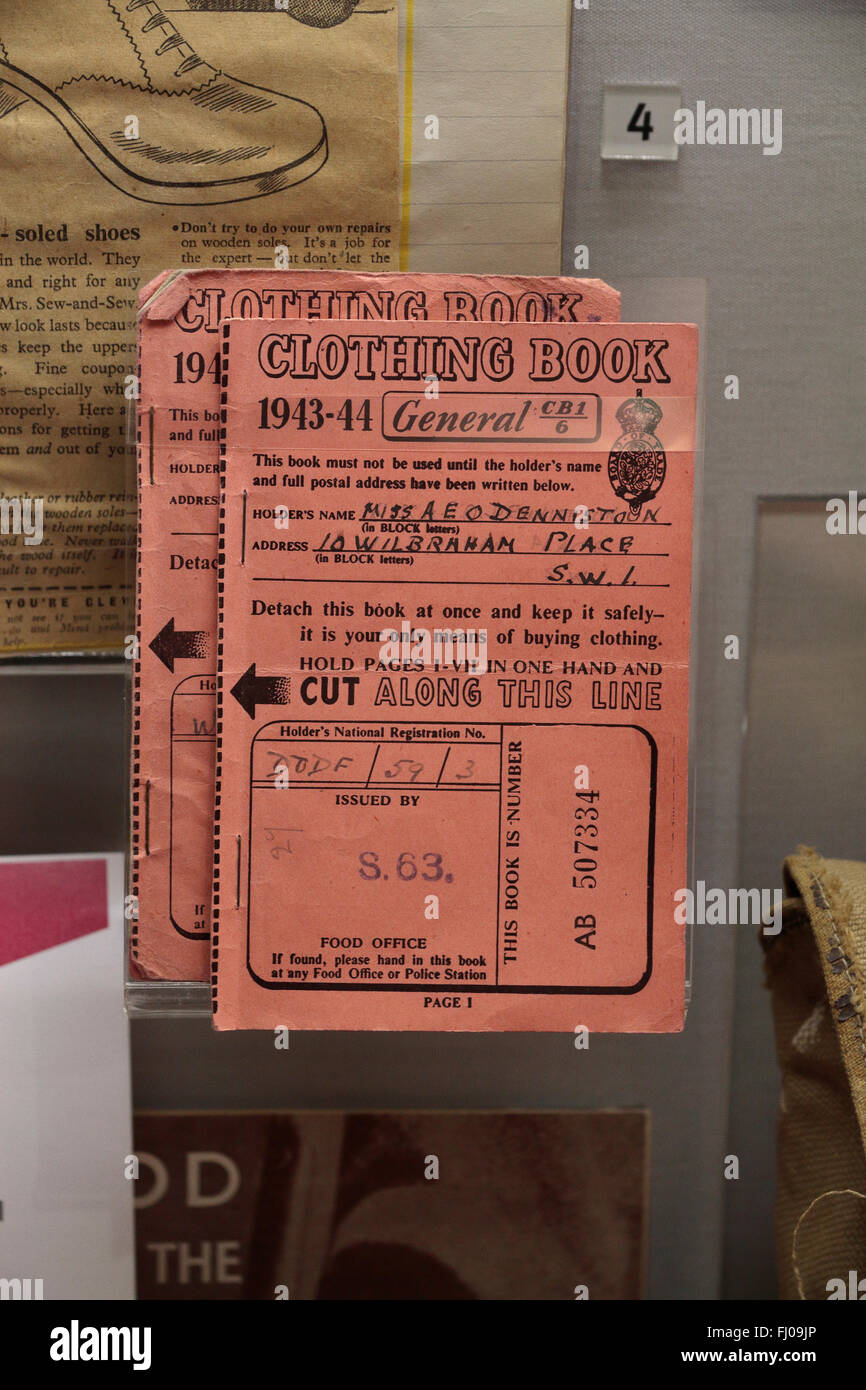 4
- soled shoes
in the world. They
and right for any
Mrs. Sew-and-Sew.
w look lasts because
s keep the upper
g. Fine coupon
s—especially
properly. Here
ons for getting
em and out of
•Don't try to do your own repairs
on wooden soles. It's a job for
the expert — but don't let the
leather or rubber
wooden soles—
them replaced
wood itself.
ult to repair.
YOU'RE
CLOTHING BOOK
194
This
and full
HOLDER
ADDRESS
Detac
If
at
CLOTHING BOOK
1943-44 General CB1/6
BOARD OF TRADE
This book must not be used until the holder's name
and full postal address have been written below.
HOLDER'S NAME MISS A E O DENNISTOUN
(in BLOCK letters)
ADDRESS 10 WILBRAHAM PLACE
(in BLOCK letters)
S.W.1.
Detach this book at once and keep it safely—
it is your only means of buying clothing.
HOLD PAGES I-VII IN ONE HAND AND
CUT ALONG THIS LINE
Holder's National Registration No.
DODF / 59 / 3
ISSUED BY
S. 63.
FOOD OFFICE
If found, please hand in this book
at any Food Office or Police Station
THIS BOOK IS NUMBER
AB 507334
PAGE I
OD
THE
alamy stock photo
FJ09JP
www.alamy.com